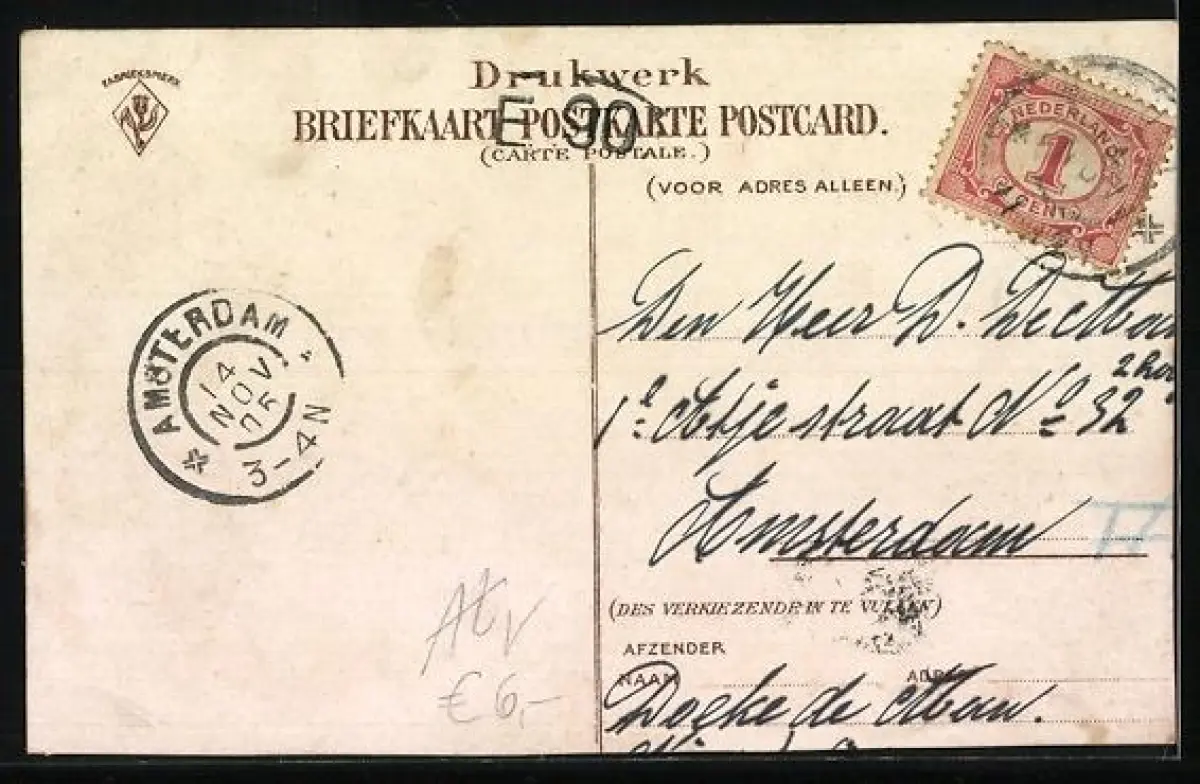 FABRIEKSMERK
Drukwerk
BRIEFKAART POSTKARTE POSTCARD.
E 90
(CARTE POSTALE.)
(VOOR ADRES ALLEEN.)
NEDERLAND
1
CENT
Den Heer D. De Man
2 hoog
1e Atjehstraat No 32
Amsterdam
AMSTERDAM
14
NOV
05
3-4N
(DES VERKIEZENDE IN TE VULLEN)
AFZENDER
NAAM ADRES
Doeke de Man.
€ 6,-